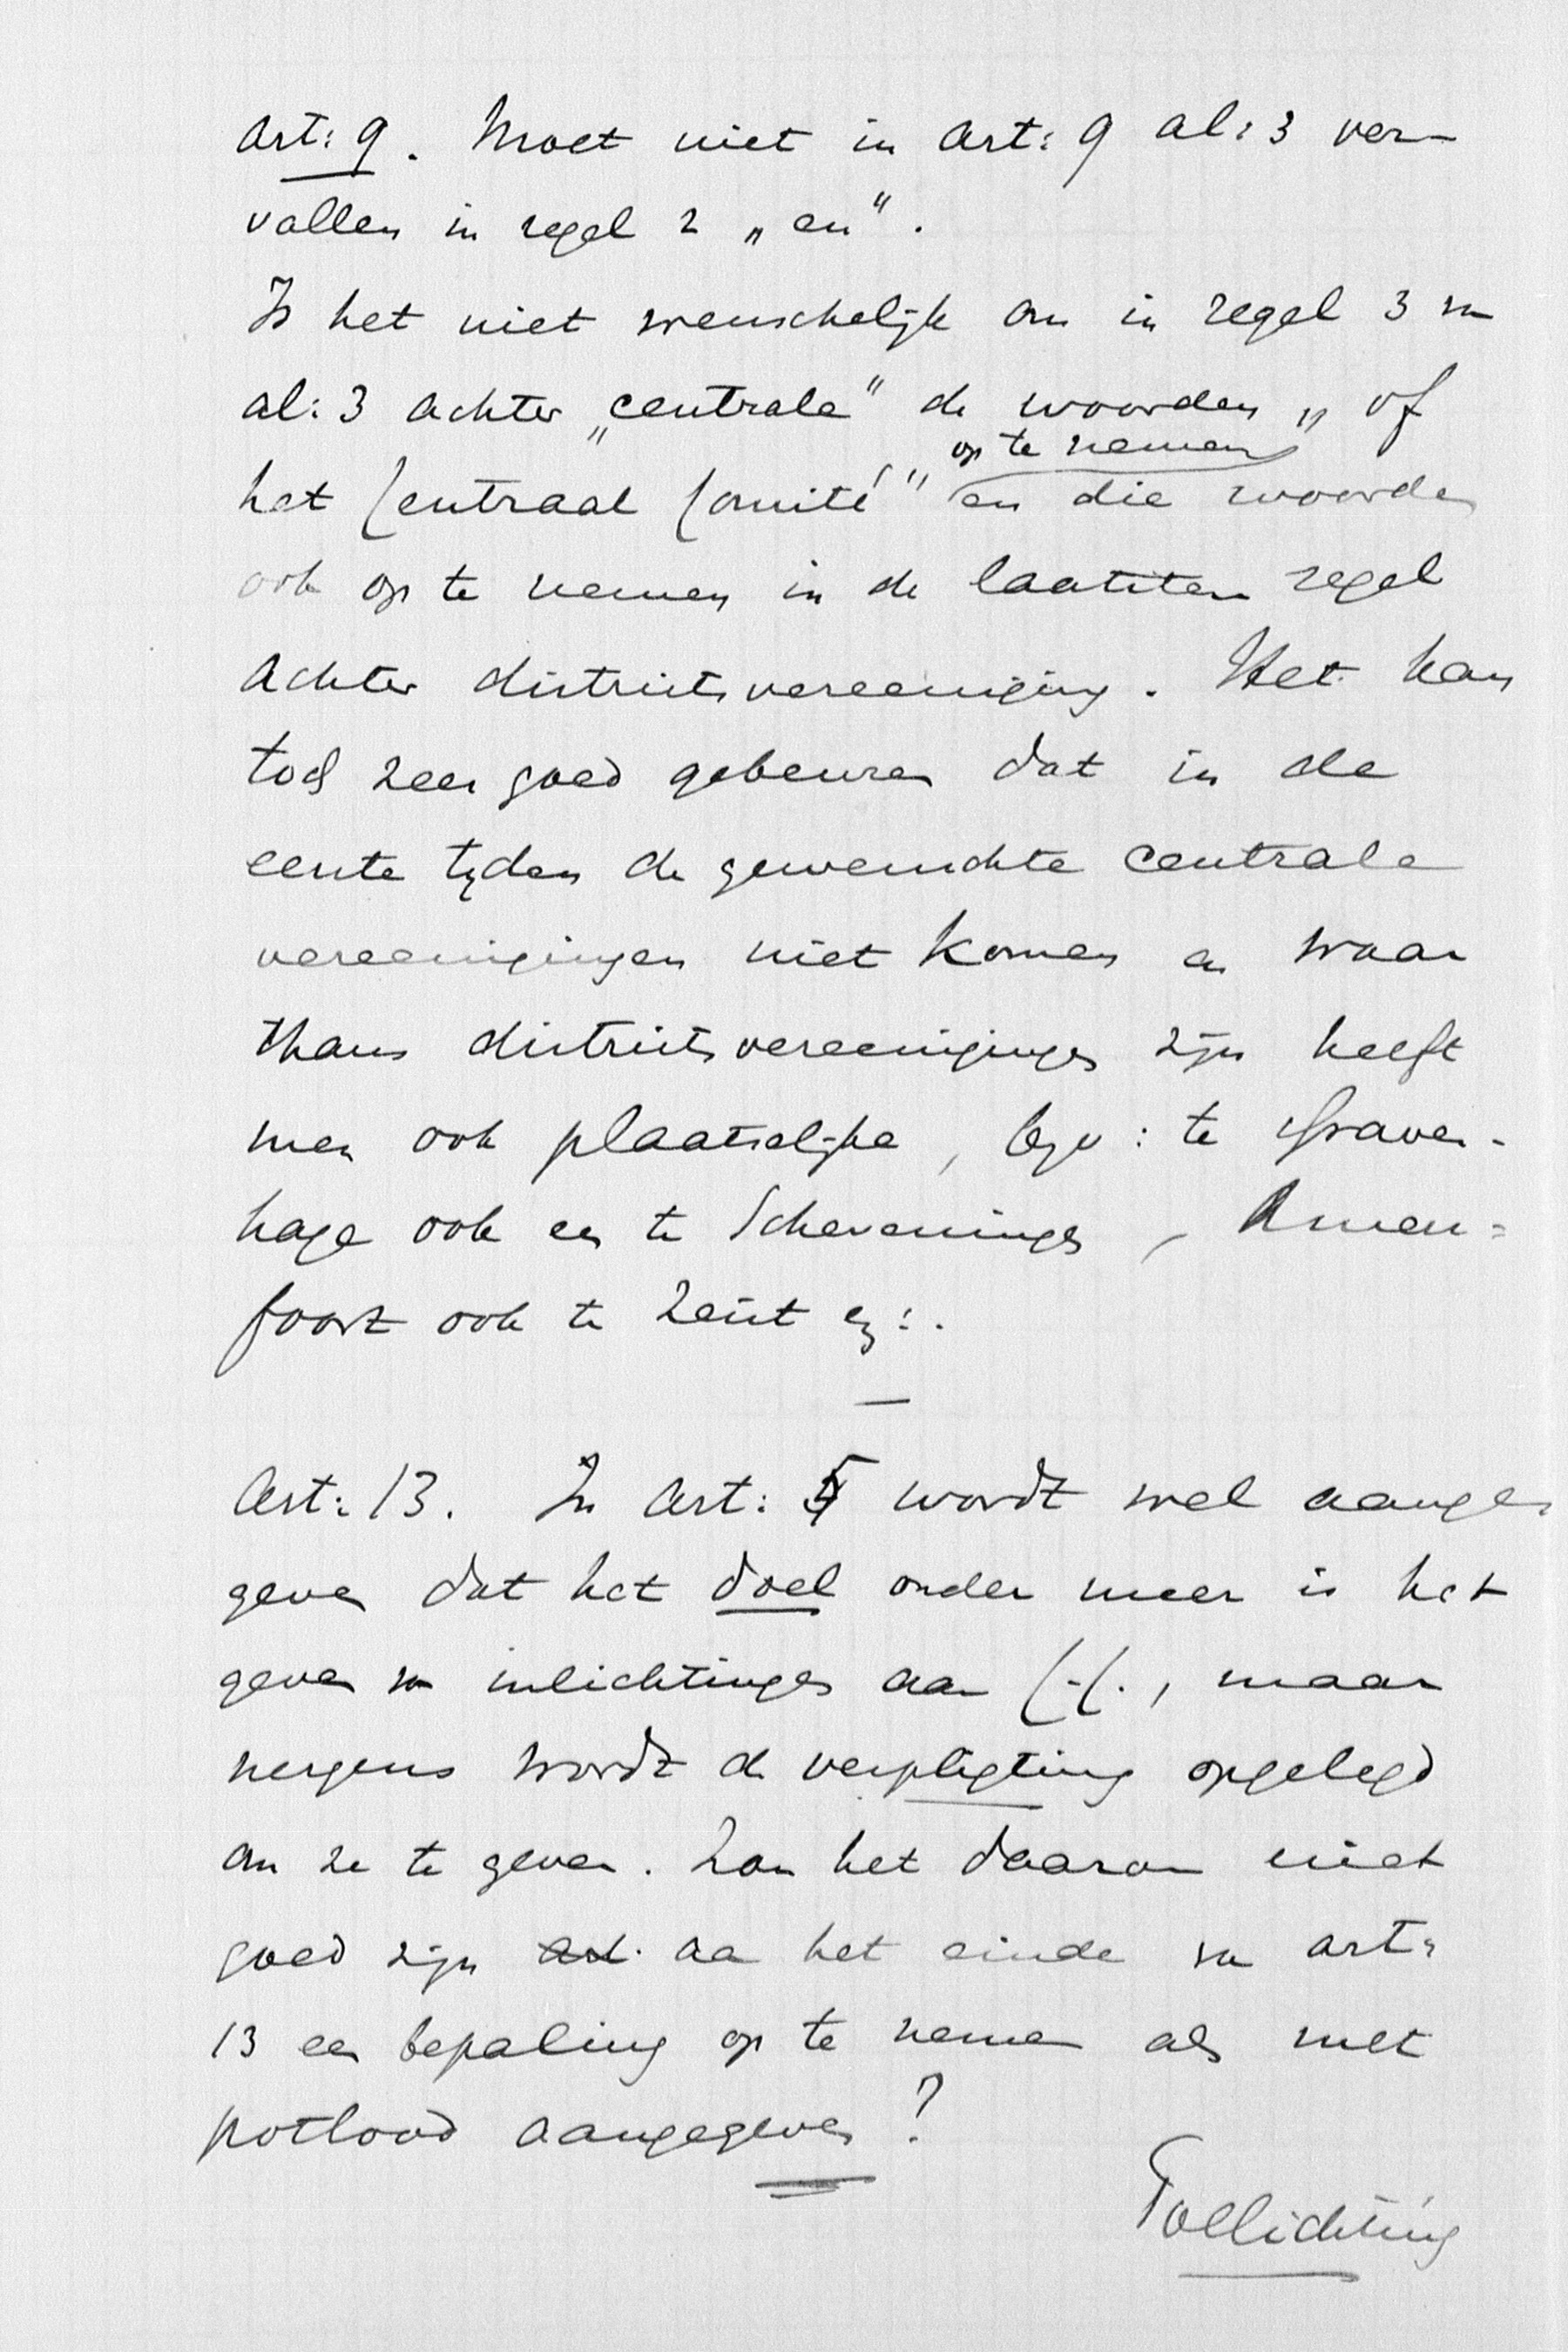 Art: 9. Moet niet in Art: 9 al: 3 ver-
vallen in regel 2 „en".
Is het niet wenschelijk om in regel 3 van
al: 3 achter „centrale" de woorden „of
op te nemen
het Centraal Comité" en die woorden
ook op te nemen in de laatsten regel
achter districtsvereeniging. Het kan
toch zeer goed gebeuren dat in de
eerste tijden de gewenschte centrale
vereenigingen niet komen en waar
thans districtsvereenigingen zijn heeft
men ook plaatselijke, bijv: te Graven-
hage ook en te Scheveningen, Amers=
foort ook te Zeist ez:.
Art: 13. In Art: 5 wordt wel aange-
geven dat het doel onder meer is het
geven van inlichtingen aan C.C., maar
nergens wordt de verpligting opgelegd
om ze te geven. Zou het daarom niet
goed zijn aan het einde van art:
13 een bepaling op te nemen als met
potlood aangegeven?
Toelichting